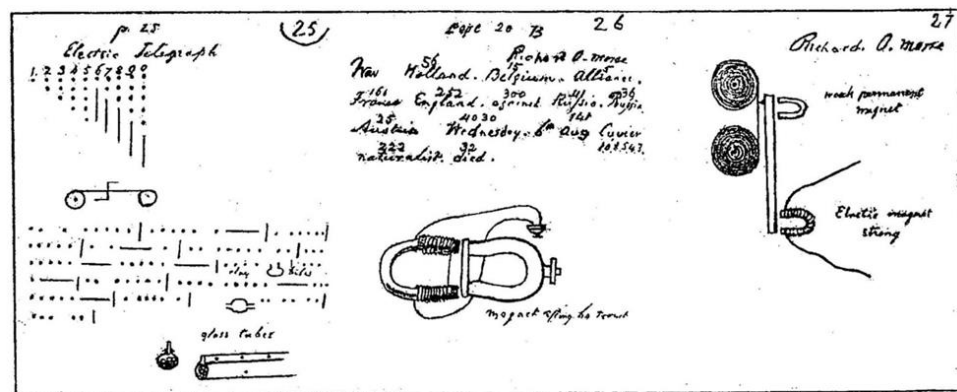 p. 25
25
Electric Telegraph
1 2 3 4 5 6 7 8 9 0
clay tiles
glass tubes
26
Richard A. Morse
56 15 5
War Holland. Belgium. Alliance.
161 252 300
France England. against Russia.
25 4030 141
Austria Wednesday. 6th Aug Cuvier
222 32
naturalist. died.
magnet
27
Richard. A. Morse
weak permanent
magnet
Electric magnet
strong